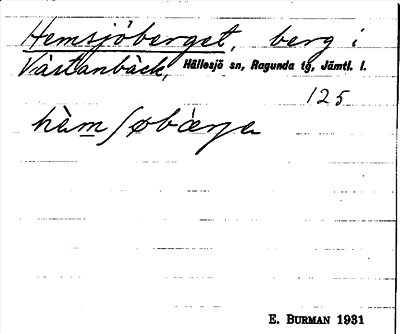 Hemsjöberget, berg i
Västanbäck, Hällesjö sn, Ragunda tg, Jämtl. l.
125
E. BURMAN 1931